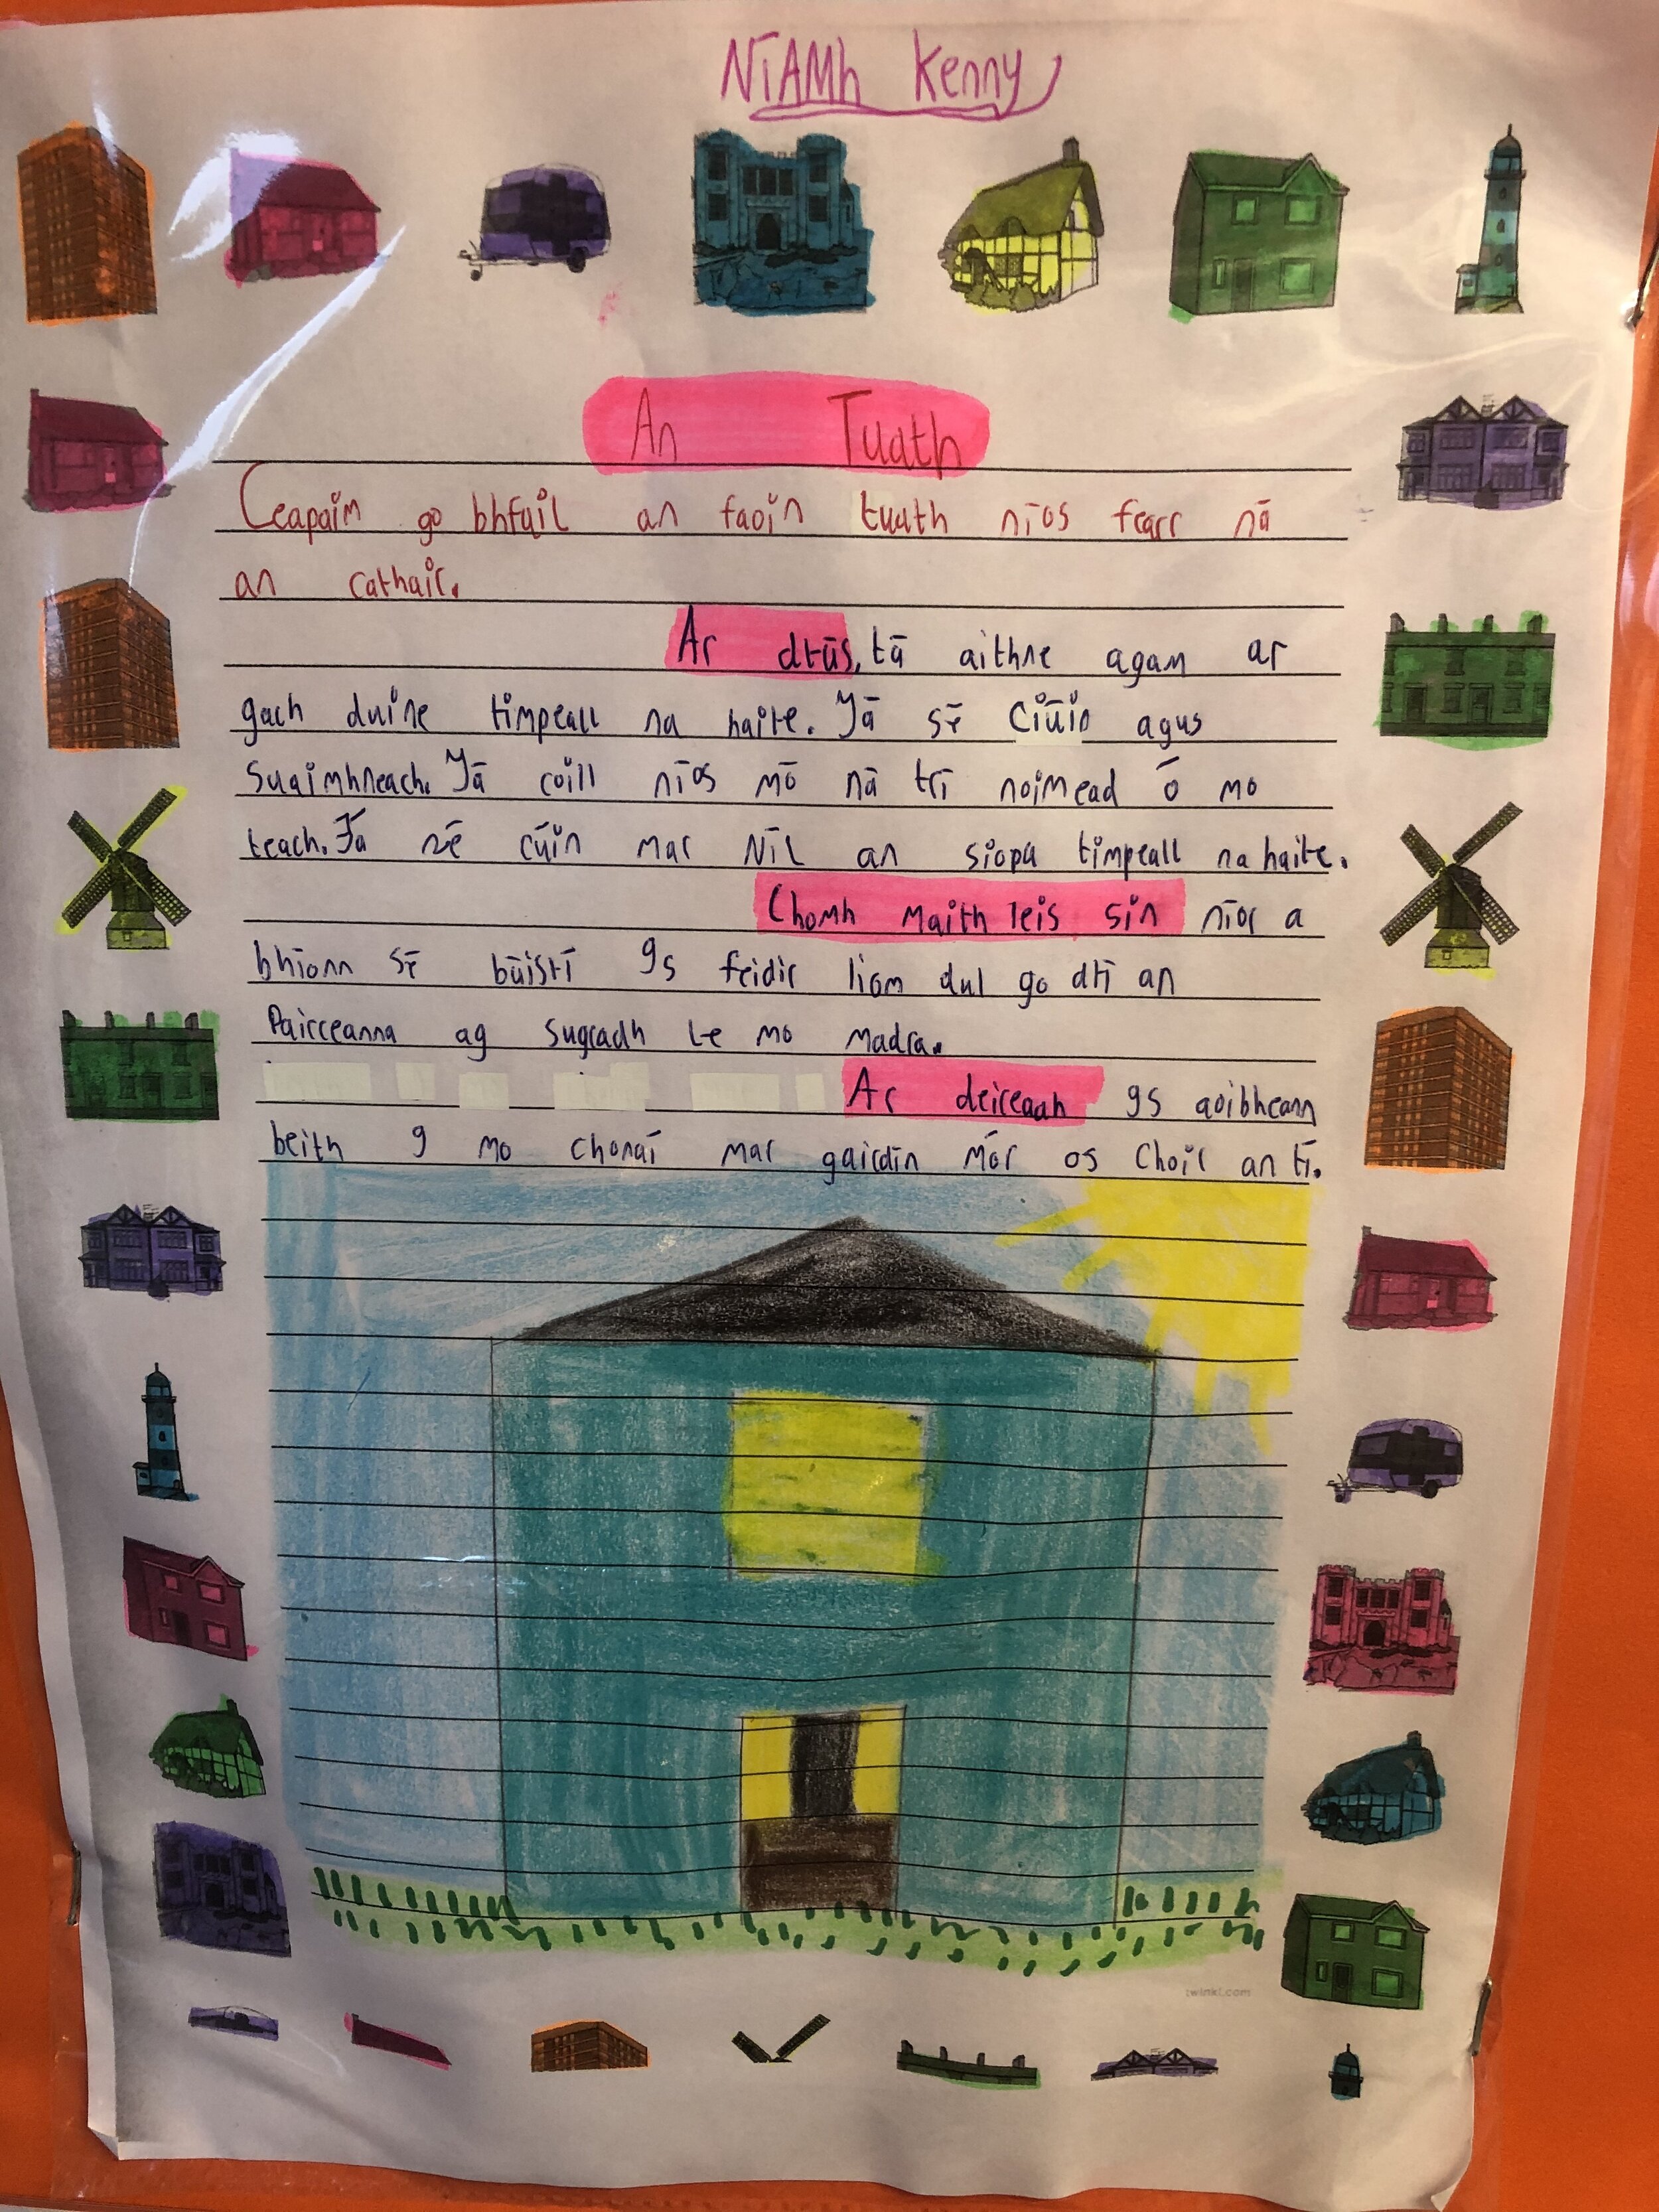 Niamh Kenny
An Tuath
Ceapaim go bhfuil an faoin tuath níos fearr ná
an cathair.
Ar dtús, tá aithne agam ar
gach duine timpeall na haite. Tá sé Ciúin agus
Suaimhneach. Tá coill níos mó ná trí noimead ó mo
teach. Tá sé cúin mar Níl an siopa timpeall na haite.
Chomh maith leis sin níor a
bhíonn sé búistí Is feidir liom dul go dtí an
Pairceanna ag sugradh le mo madra.
Ar deireadh Is aoibheann
beith I mo chonaí mar gairdín mór os Choir an tí.
twinkl.com